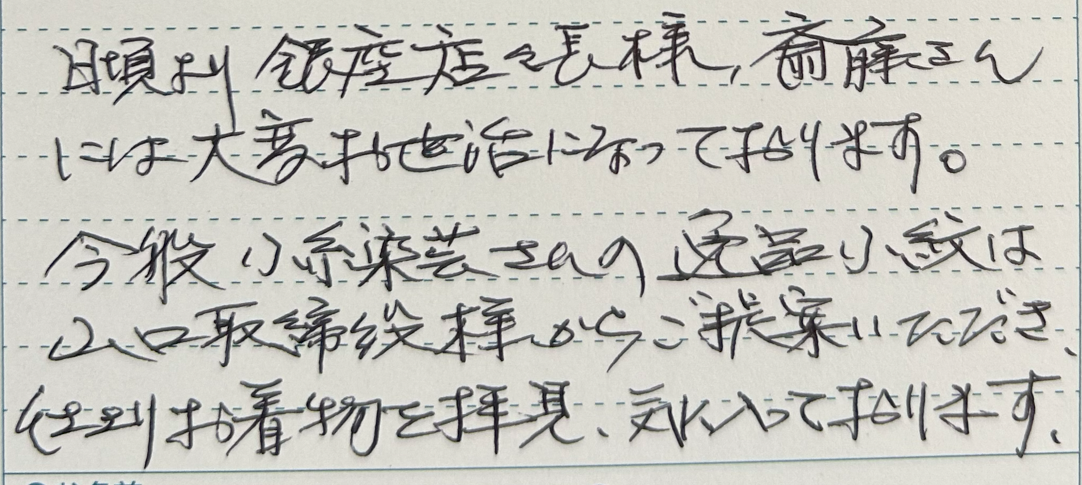 日頃より銀座店々長様、斎藤さん
には大変お世話になっております。
今般小糸染芸さんの逸品小紋は
山口取締役様からご提案いただき、
お着物を拝見、気に入っております、